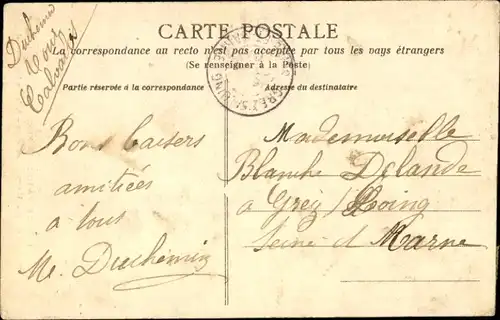 CARTE POSTALE
La correspondance au recto n'est pas acceptée par tous les pays étrangers
(Se renseigner à la Poste)
Partie réservée à la correspondance
Adresse du destinataire
Duchemin
Calvados
Bons baisers
amitiées
a tous
Me. Duchemin
Mademoiselle
Blanche Delande
a Grez / Loing
Seine et Marne